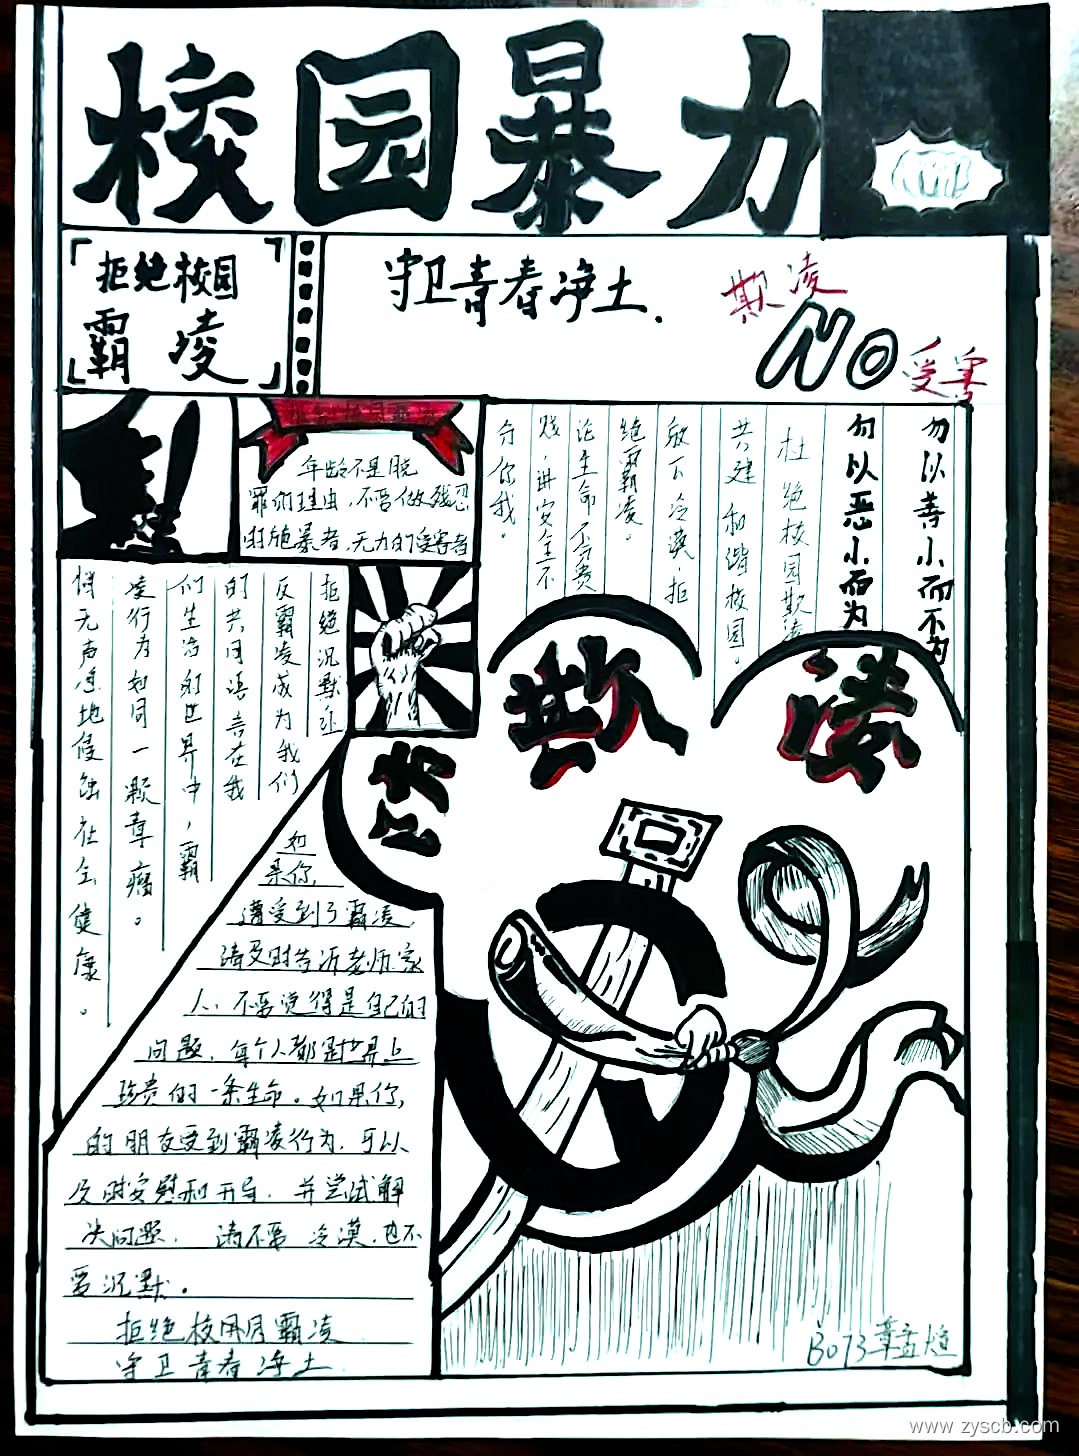 校园暴力
拒绝校园
霸凌
守卫青春净土.
欺凌
NO
受害
年龄不是脱
罪的理由,不要做残忍
的施暴者,无力的受害者
勿以善小而不为
勿以恶小而为
杜绝校园欺凌
共建和谐校园。
放下冷漠,拒
绝霸凌。
论生命不分贵
贱,讲安全不
分你我。
拒绝沉默让
反霸凌成为我们
的共同语言在我
们生活的世界中,霸
凌行为如同一颗毒瘤。
悄无声息地侵蚀社会健康。
防
欺
凌
如
果你,
遭受到了霸凌,
请及时告诉老师家
人,不要觉得是自己的
问题,每个人都是世界上
珍贵的一条生命。如果你,
的朋友受到霸凌行为,可以
及时安慰和开导,并尝试解
决问题,请不要冷漠,也不
要沉默。
拒绝校园霸凌
守卫青春净土
B073
www.zyscb.com